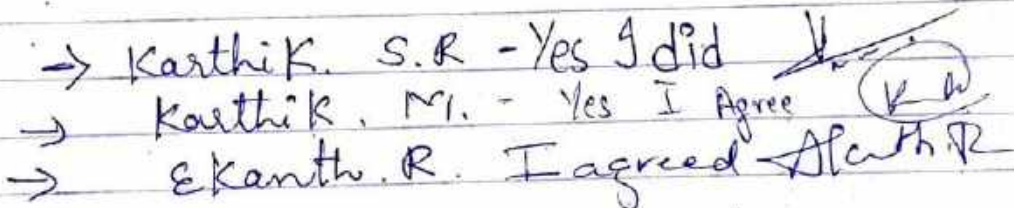 → Karthik. S.R - Yes I did
→ Karthik. M. - Yes I Agree
→ Ekanth. R. I agreed